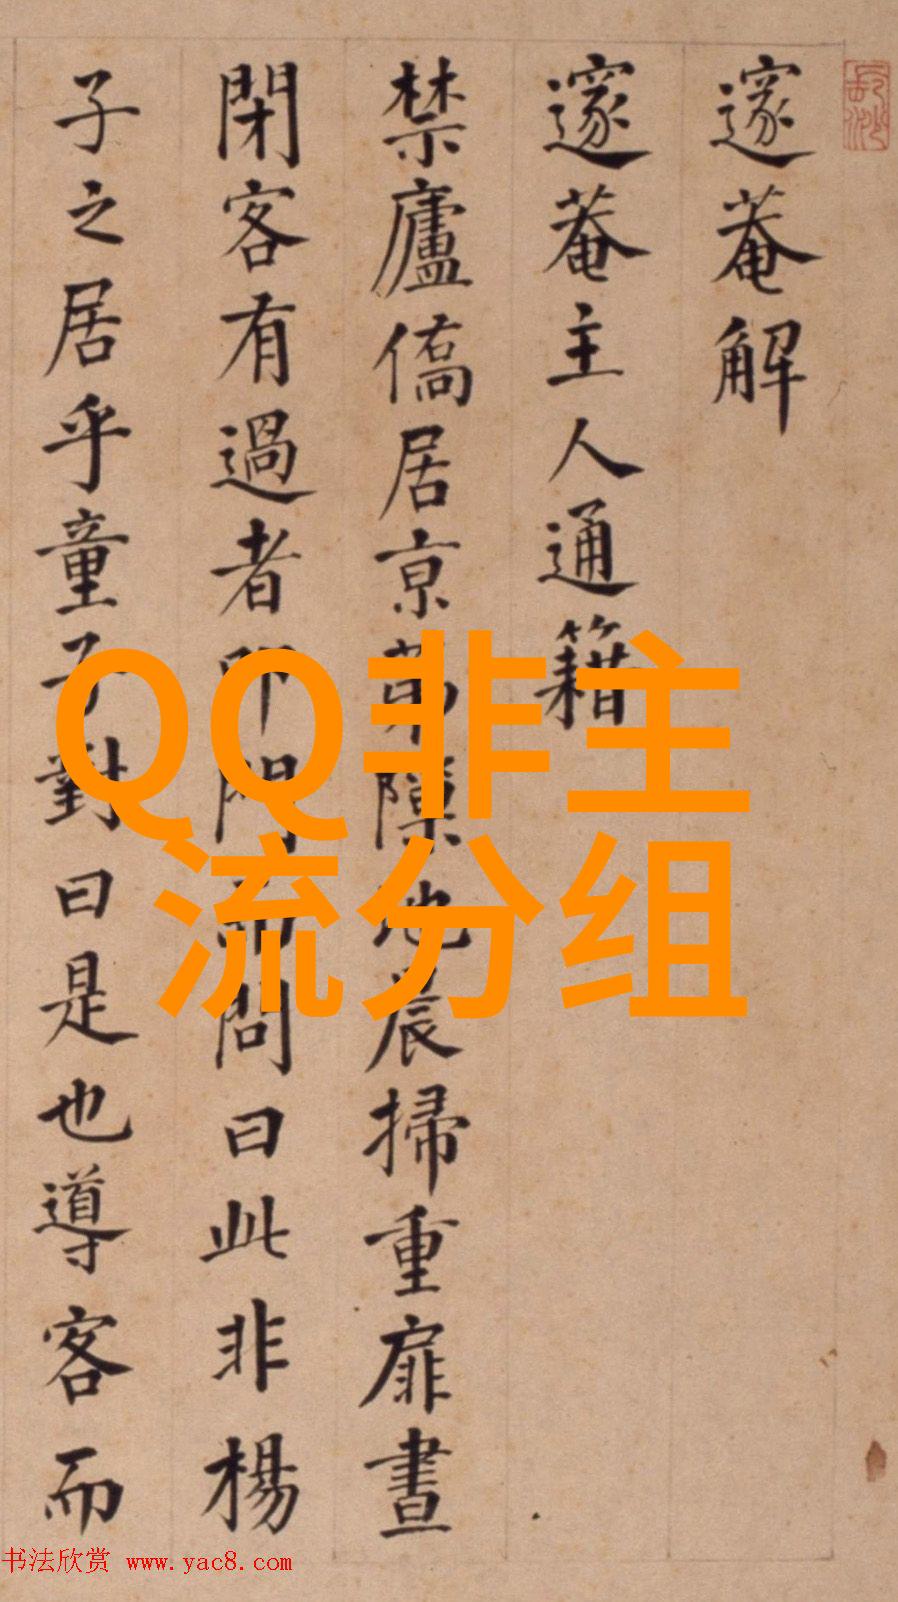 邃菴解
邃菴主人通籍
禁廬僑居京第隙地晨掃重扉晝
閉客有過者即門而問曰此非楊
子之居乎童子對曰是也導客而
QQ非主
流分组
书法欣赏 www.yac8.com